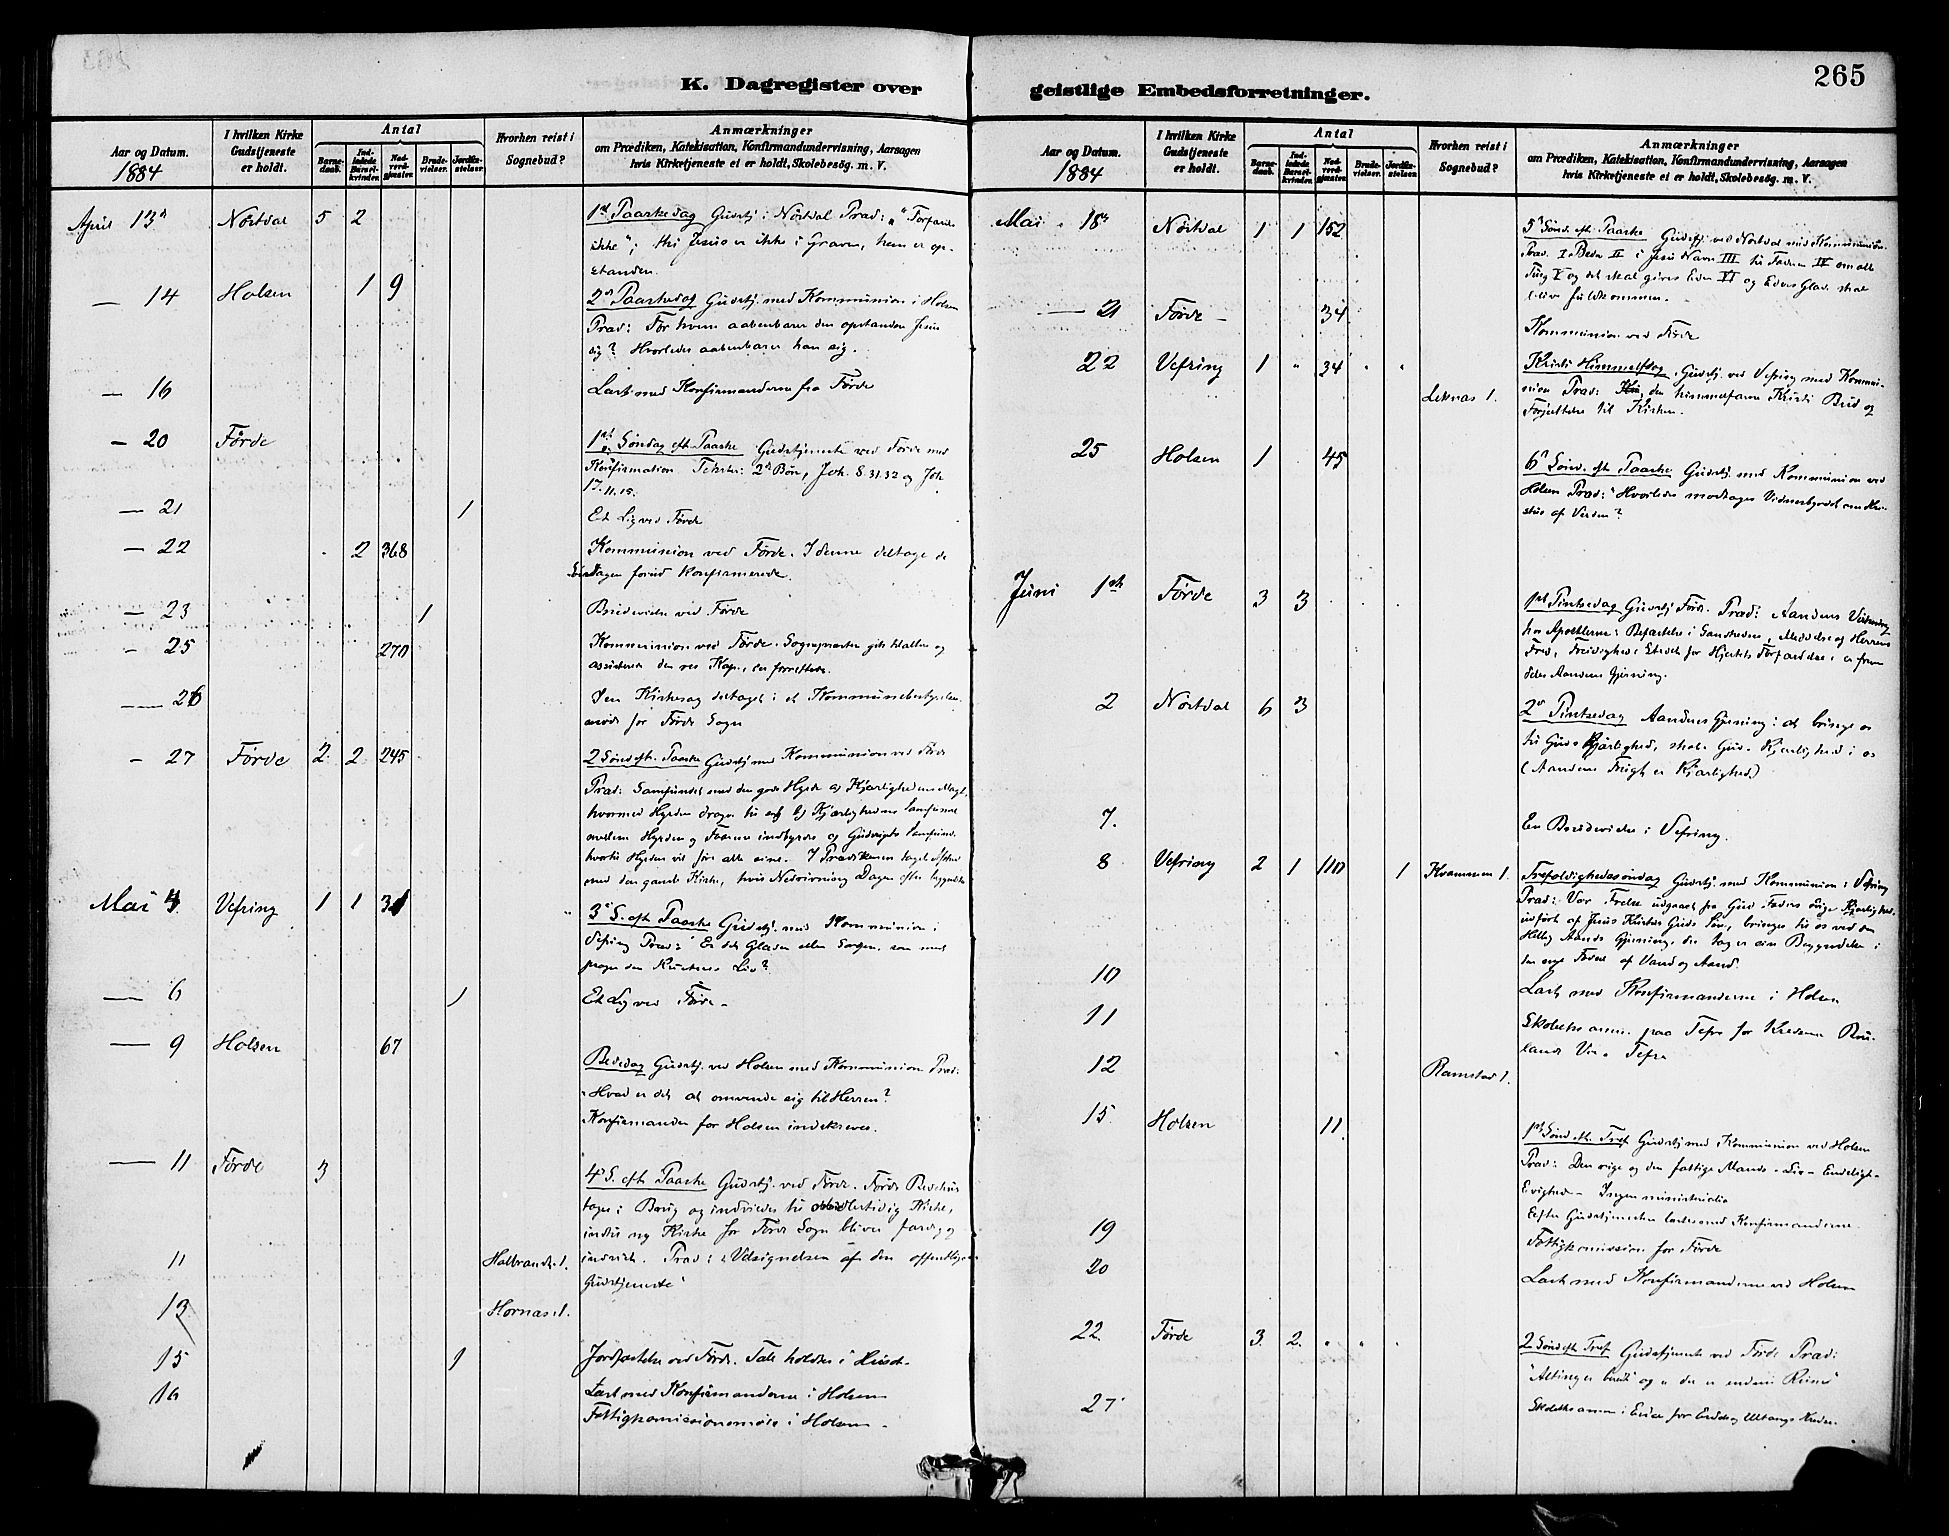 265
K. Dagregister over
geistlige Embedsforretninger.
Aar og Datum.
1884
I hvilken Kirke
Gudstjeneste
er holdt.
Antal
Barne-
daab.
Ind-
ledede
Barsel-
kvinder.
Nad-
verd-
gjæster.
Brude-
vielser.
Jordfæ-
stelser.
Hvorhen reist i
Sognebud?
Anmærkninger
om Prædiken, Katekisation, Konfirmandundervisning, Aarsagen
hvis Kirketjeneste ei er holdt, Skolebesøg. m. V.
April 13 Nøstdal 5 2 1st Paaskedag Gudstj. i Nøstdal Præd: "Forfærdes
ikke"; thi Jesus er ikke i Graven, han er op-
standen.
14 Holsen 1 9 2 Paaskedag Gudstj. med Kommunion i Holsen
Præd: For hvem aabenbarer den opstanden Jesus
sig? Hvorledes aabenbarer han sig.
16 Læst med Konfirmanderne fra Førde
20 Førde 1st Søndag eft. Paaske Gudstjeneste ved Førde med
Konfirmation Tekster: 2 Bøn, Joh. 8.31.32 og Joh
17.11.15.
21 1 Et Lig ved Førde
22 2 368 Kommunion ved Førde. I denne deltage de
Søndagen forud Konfirmerede.
23 1 Brudevielse ved Førde
25 270 Kommunion ved Førde. Sognepræsten gik til Alters og
assisterer den res Kap., en forretter.
26 Den Kirkesag deltaget i et Kommunebestyrelses
møde for Førde Sogn
27 Førde 2 2 245 2 Sønd eft. Paaske Gudstj med Kommunion ved Førde
Præd: Samfundet med den gode Hyrde a) Kjærlighedens Magt,
hvormed Hyrden drager til sig b) Kjærlighedens Samfund
mellem Hyrden og Faarene indbyrdes c) Gudsrigets Samfund
hvortil Hyrden vil føre alle sine. I Prædikenen taget Afsked
med den gamle Kirke, hvis Nedrivning Dagen efter begyndte
Mai 4 Vefring 1 1 31 3 S. eft. Paaske Gudstj. med Kommunion i
Vefring Præd: Er det Glæden eller Sorgen, som mest
præger den Kristnes Liv?
6 1 Et Lig ved Førde
9 Holsen 67 Bededag Gudstj. ved Holsen med Kommunion Præd:
Hvad er det at omvende sig til Herren?
Konfirmander for Holsen indskreves.
11 Førde 3 4 S. eft. Paaske Gudstj. ved Førde. Førde Bedehus
toges i Brug og indviedes til midlertidig Kirke,
indtil ny Kirke for Førde Sogn bliver færdig og
indviet. Præd: "Velsignelsen af den offentlige
Gudstjeneste"
11 Halbrand 1.
13 Hornæs 1.
15 1 Jordfæstelse ved Førde. Tale holdtes i Huset
16 Læst med Konfirmanderne i Holsen
Fattigkomissionsmøde i Holsen
Aar og Datum.
1884
I hvilken Kirke
Gudstjeneste
er holdt.
Antal
Barne-
daab.
Ind-
ledede
Barsel-
kvinder.
Nad-
verd-
gjæster.
Brude-
vielser.
Jordfæ-
stelser.
Hvorhen reist i
Sognebud?
Anmærkninger
om Prædiken, Katekisation, Konfirmandundervisning, Aarsagen
hvis Kirketjeneste ei er holdt, Skolebesøg. m. V.
Mai 18 Nøstdal 1 1 152 5 Sønd. eft. Paaske Gudstj. ved Nøstdal med Kommunion
Præd. I Beder II i Jesu Navn III til Faderen IV om alle
Ting V og det skal gives Eder VI og Eders Glæde skal
blive fuldkommen.
21 Førde 34 Kommunion ved Førde
22 Vefring 1 34 Leknæs 1. Kristi Himmelftdag. Gudstj. ved Vefring med Kommu-
nion Præd: den himmelfarne Kristi Bud og
Forjættelse til Kirken.
25 Holsen 1 45 6 Sønd. eft Paaske Gudstj. med Kommunion ved
Holsen Præd: Hvorledes modtages Vidnesbyrdet om Kri-
stus af Verden?
Juni 1st Førde 3 3 1st Pintsedag Gudstj. Førde. Præd: Aandens Virkning
hos Apostlerne: Befæstelse i Sandheden, Meddelelse af Herrens
Fred, Frimodighed i Stedet for Hjertets Forfærdelse, er frem-
deles Aandens Gjerning.
2 Nøstdal 6 3 2 Pintsedag Aandens Gjerning: at bringe os
til Guds Kjærlighed, skabe Guds Kjærlighed i os
(Aandens Frugt er Kjærlighed)
7. En Brudevielse i Vefring.
8 Vefring 2 1 110 1 Kvammen 1. Trefoldighedssøndag Gudstj. med Kommunion i Vefring
Præd: Vor Frelse udgaaet fra Gud Faders evige Kjærlighed,
udført af Jesus Kristus Guds Søn, bringes til os ved den
Hellig Aands Gjerning, der tager sin Begyndelse i
den nye Fødsel af Vand og Aand.
10 Læst med Konfirmanderne i Holsen
11 Skoleeksamen paa Tefre for Kredsene
Tefre
12 Ramstad 1.
15 Holsen 11. 1st Sønd eft. Tref Gudstj med Kommunion ved Holsen
Præd: Den rige og den fattige Mands - Liv - Endeligt -
Evighed - Ingen ministerialia
Efter Gudstjenesten læstes med Konfirmanderne
19 Fattigkomission for Førde
20 Læst med Konfirmanderne ved Holsen
22. Førde 3. 2. 2 Sønd eft Tref Gudstjeneste ved Førde Præd:
"Alting er beredt" og "der er endnu Rum"
27 Skoleeksamen i Erdal for Erdal og Kredse